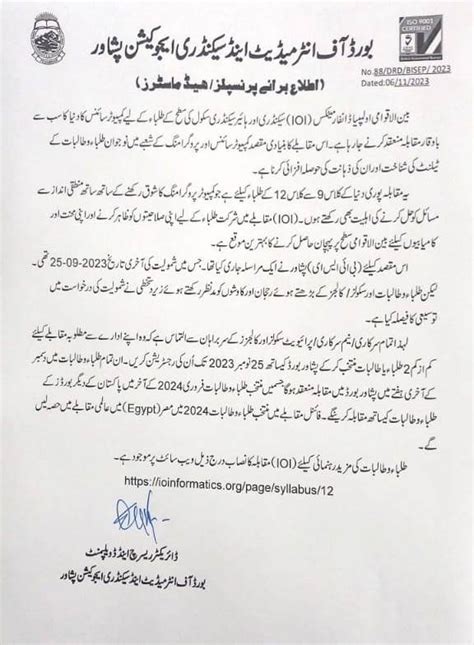 ISO 9001
CERTIFIED
بورڈ آف انٹرمیڈیٹ اینڈ سیکنڈری ایجوکیشن پشاور
No.88/DRD/BISEP/ 2023
Dated:06/11/2023
(اطلاع برائے پرنسپلز/ ہیڈ ماسٹرز)
بین الاقوامی اولمپیاڈ انفارمیٹکس (IOI) سیکنڈری اور ہائیر سیکنڈری سکول کی سطح کے طلباء کے لیے کمپیوٹر سائنس کا دنیا کا سب سے
باوقار مقابلہ منعقد کرنے جا رہا ہے۔ اس مقابلے کا بنیادی مقصد کمپیوٹر سائنس اور پروگرامنگ کے شعبے میں نوجوان طلباء و طالبات کے
ٹیلنٹ کی شناخت اور ان کی ذہانت کی حوصلہ افزائی کرنا ہے۔
یہ مقابلہ پوری دنیا کے کلاس 9 سے کلاس 12 کے طلباء کیلئے ہے جو کمپیوٹر پروگرامنگ کا شوق رکھنے کے ساتھ ساتھ منطقی انداز سے
مسائل کو حل کرنے کی اہلیت بھی رکھتے ہوں۔ (IOI) مقابلے میں شرکت طلباء کے لیے اپنی صلاحیتوں کو ظاہر کرنے اور اپنی محنت اور
کامیابیوں کیلئے بین الاقوامی سطح پر پہچان حاصل کرنے کا بہترین موقع ہے۔
اس مقصد کیلئے (بی آئی ایس ای) پشاور نے ایک مراسلہ جاری کیا تھا۔ جس میں شمولیت کی آخری تاریخ 2023-09-25 تھی۔
لیکن طلباء و طالبات اور سکولز/ کالجز کے بڑھتے ہوئے رجحان اور کاوشوں کو مدنظر رکھتے ہوئے زیر دستخطی نے شمولیت کی درخواست میں
توسیع کا فیصلہ کیا ہے۔
لہذا تمام سرکاری/ نیم سرکاری/ پرائیویٹ سکولز اور کالجز کے سربراہان سے التماس ہے کہ وہ اپنے ادارے سے مطلوبہ مقابلے کیلئے
کم از کم 2 طلباء یا طالبات منتخب کر کے پشاور بورڈ کیساتھ 25 نومبر 2023 تک اُن کی رجسٹریشن کریں۔ ان تمام طلباء و طالبات میں دسمبر
کے آخری ہفتے میں پشاور بورڈ میں مقابلہ منعقد ہوگا جسمیں منتخب طلباء و طالبات فروری 2024 کے آخر میں پاکستان کے دیگر بورڈز کے
طلباء و طالبات کیساتھ مقابلہ کرینگے۔ فائنل مقابلے میں منتخب طلباء و طالبات 2024 میں مصر (Egypt) میں عالمی مقابلے میں حصہ لیں
گے۔
طلباء و طالبات کی مزید رہنمائی کیلئے (IOI) مقابلہ کا نصاب درج ذیل ویب سائٹ پر موجود ہے۔
https://ioinformatics.org/page/syllabus/12
ڈائریکٹر ریسرچ اینڈ ڈویلپمنٹ
بورڈ آف انٹرمیڈیٹ اینڈ سیکنڈری ایجوکیشن پشاور